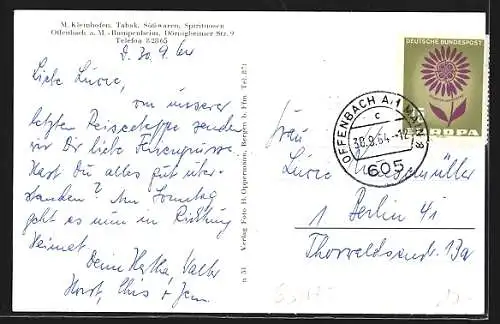 M. Kleinhofen, Tabak, Süßwaren, Spirituosen
Offenbach a. M.-Rumpenheim, Dörnigheimer Str. 9
Telefon 82865
d. 30.9.64
Liebe Lucie,
von unserer
letzten Reiseetappe senden
wir Dir liebe Feriengrüsse.
Hast Du alles gut über-
standen? Am Sonntag
geht es nun in Richtung
Heimat
Deine Hertha, Walter
Horst, Chris + Jens
Verlag Foto H. Oppermann, Bergen b. Ffm Tel. 871
n 51
DEUTSCHE BUNDESPOST
EUROPA
OFFENBACH A.
c
30.9.64.-12
605
Frau
Lucie
1 Berlin 41
Thorwaldsenstr. 13a